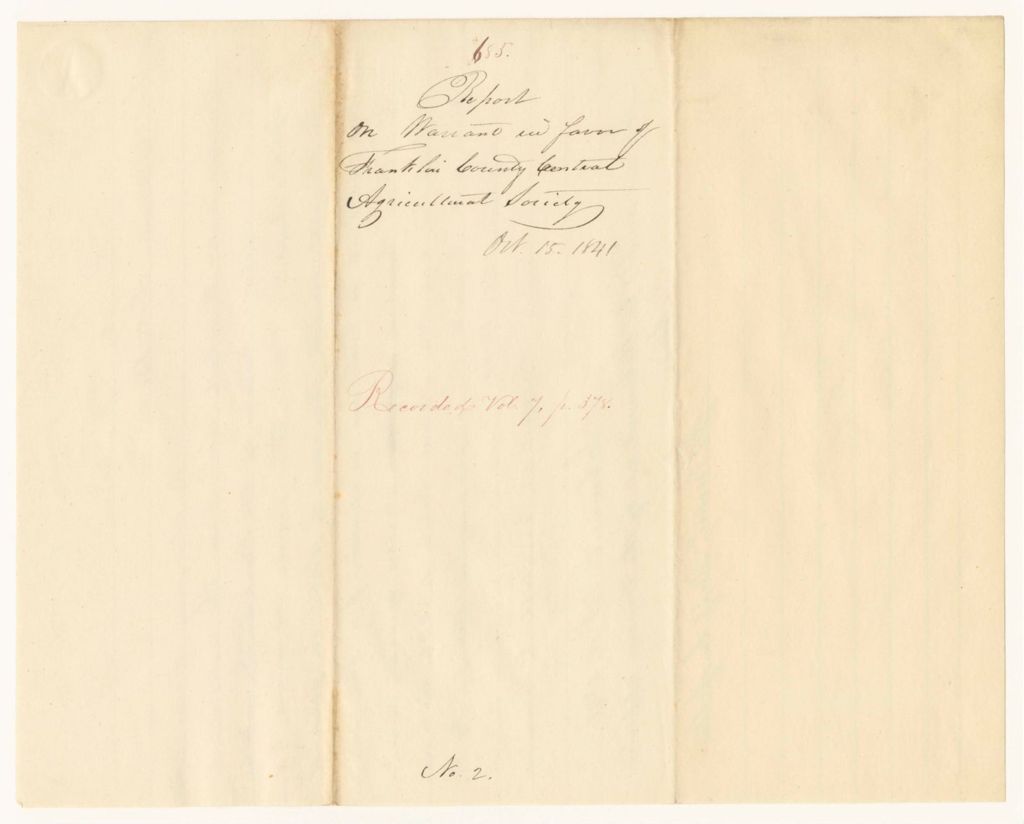 655.
Report
on Warrant in favor of
Franklin County Central
Agricultural Society
Oct. 15. 1841
Recorded Vol. 7, p. 378.
No. 2.